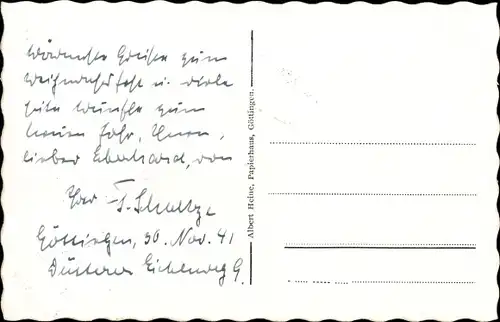 Wärmste Grüße zum
Weihnachtsfest u. viele
gute Wünsche zum
neuen Jahr, Ihnen,
lieber Eberhard, von
Ihrer F. Schultze
Göttingen, 30. Nov. 41
Düsterer Eichenweg 9.
Albert Heine, Papierhaus, Göttingen.